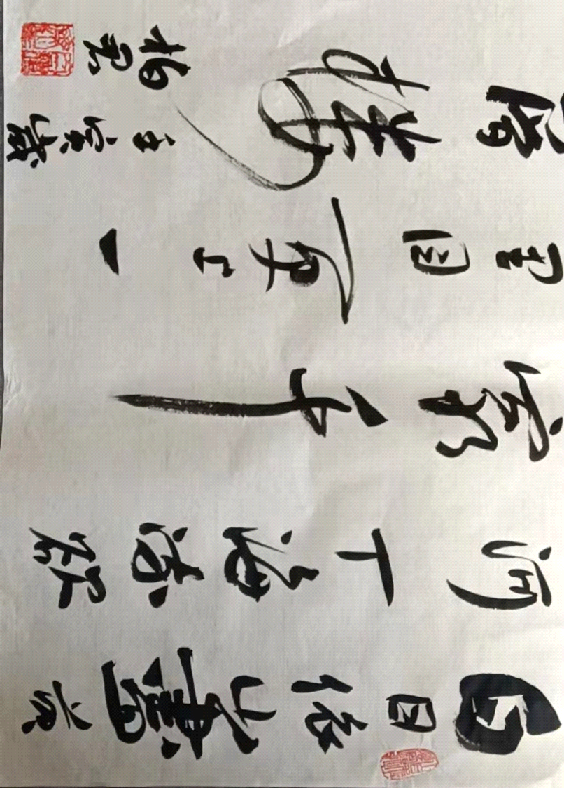 白日依山盡黄
河入海流欲
窮千
里目更上一
層樓